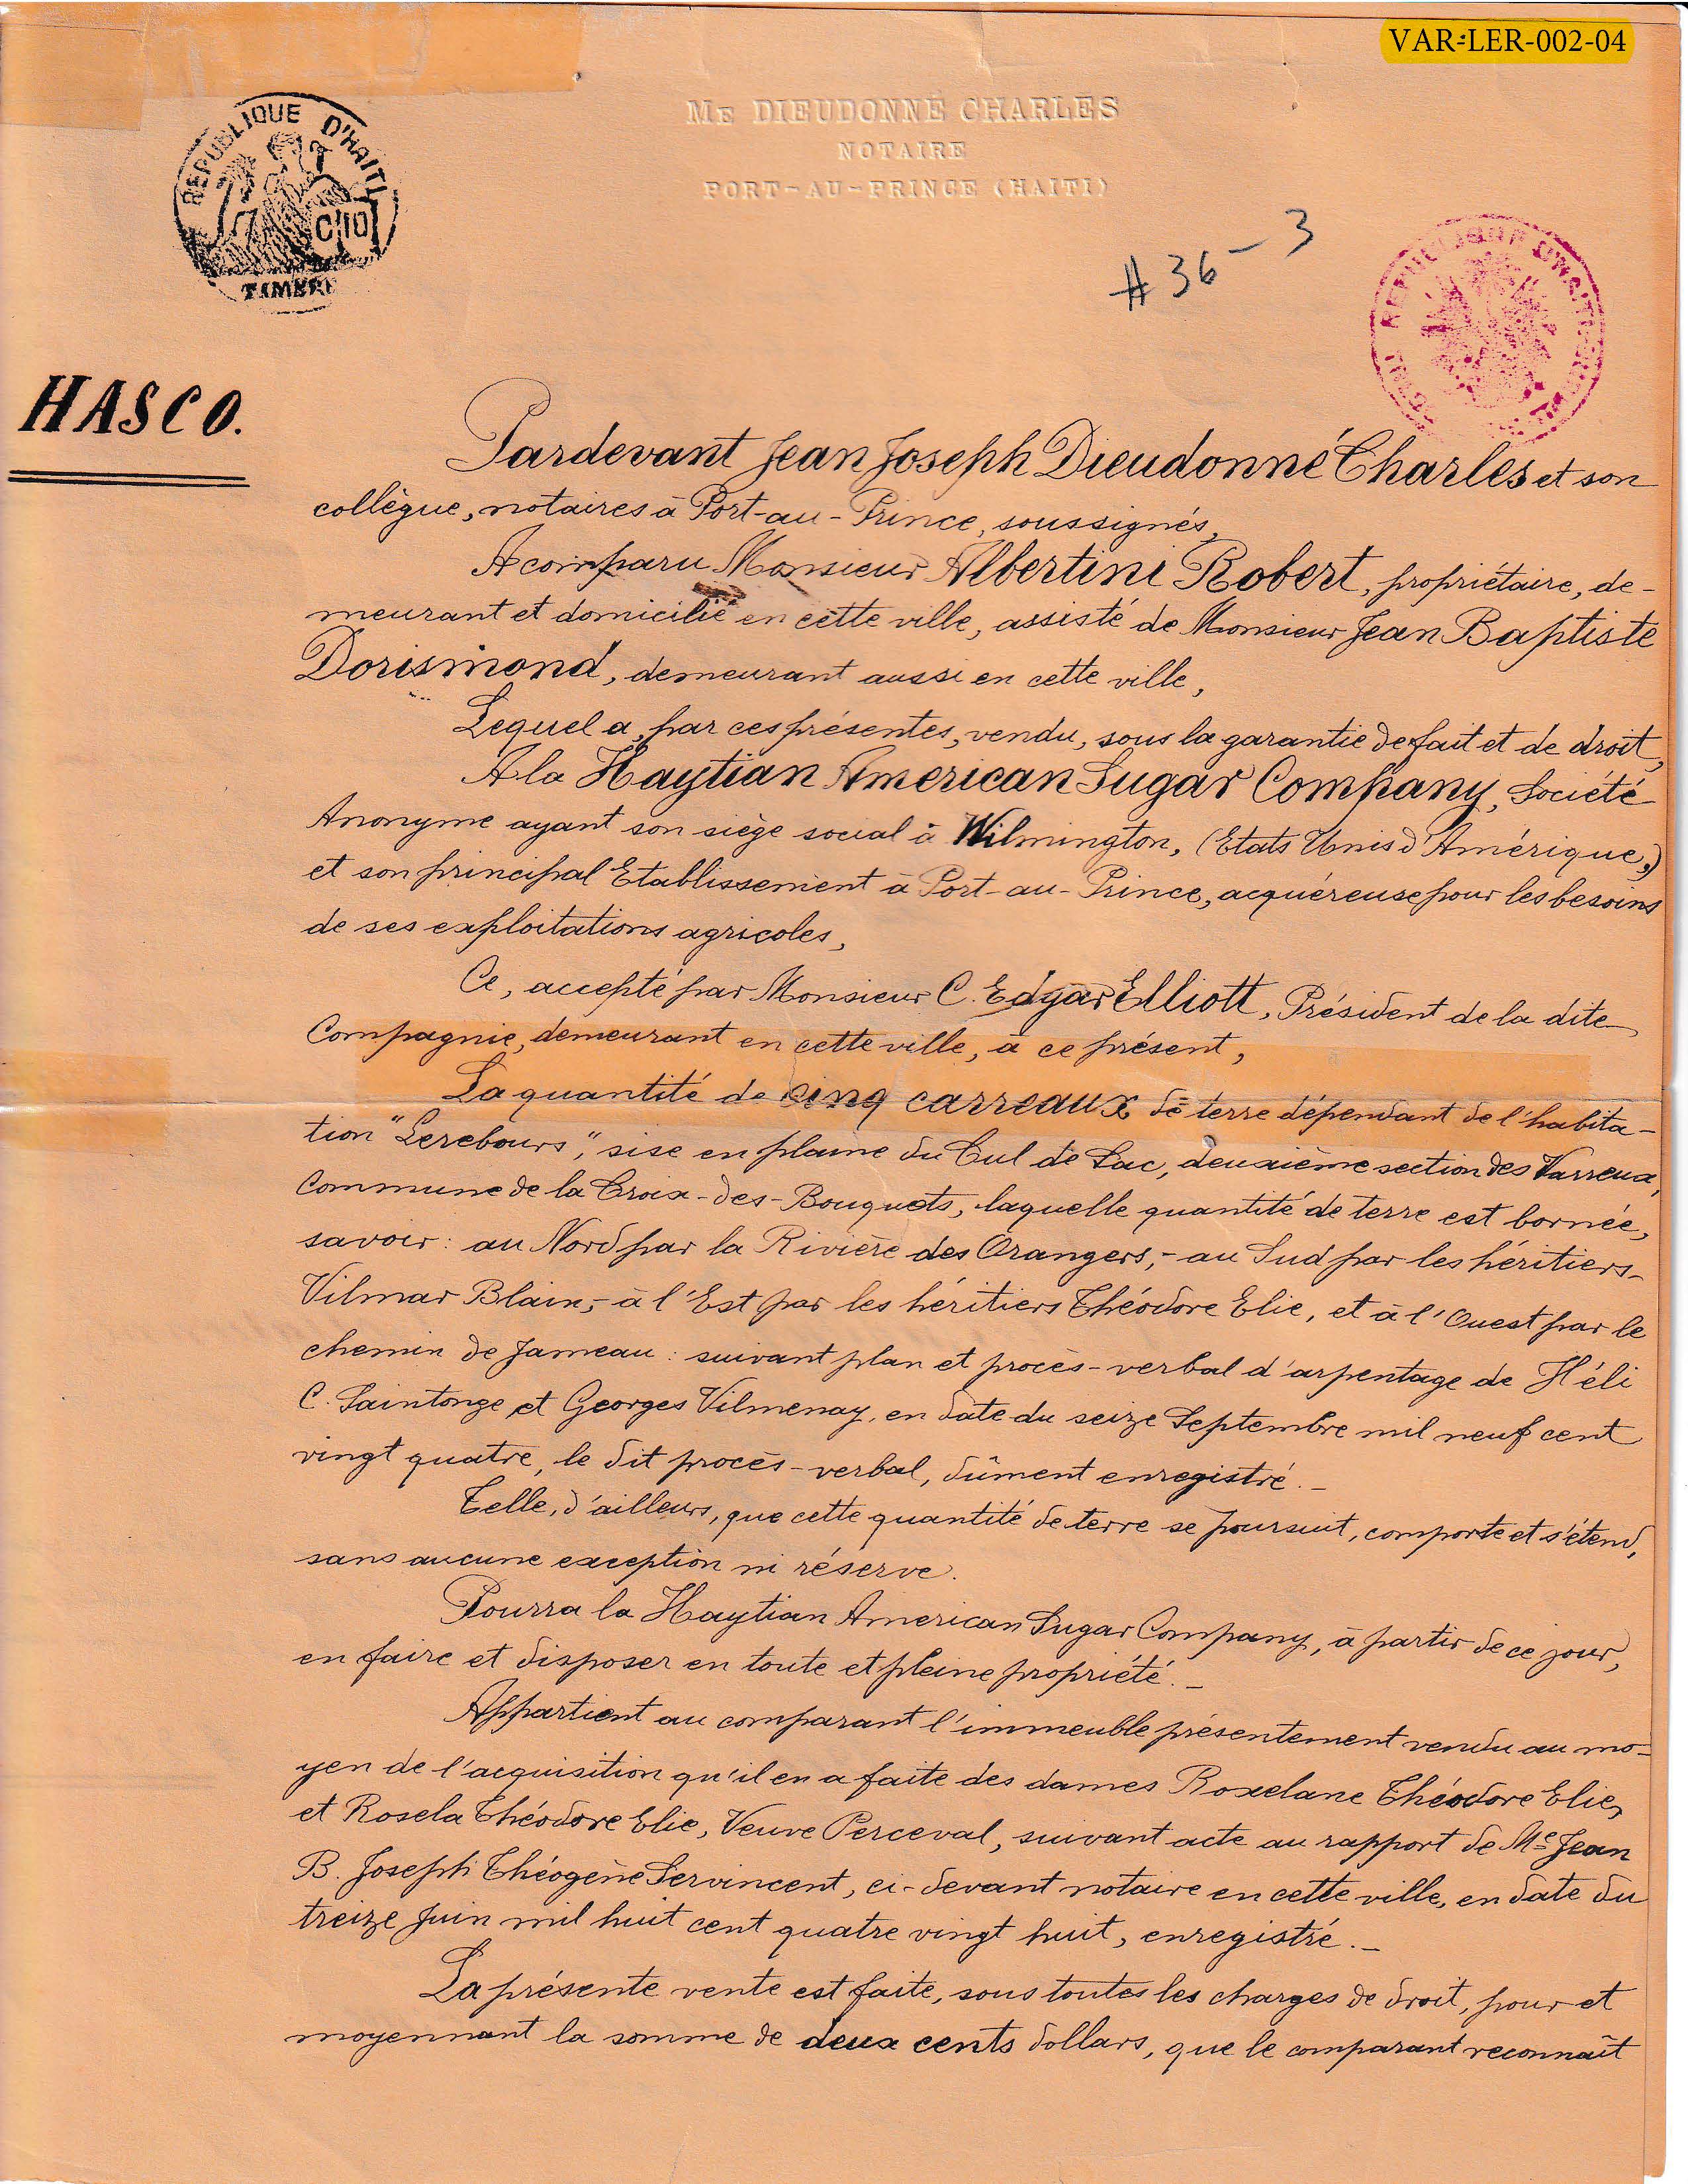 VAR-LER-002-04
REPUBLIQUE D'HAITI
C 10
TIMBRE
ME DIEUDONNÉ CHARLES
NOTAIRE
PORT-AU-PRINCE (HAITI)
# 36 - 3
REPUBLIQUE D'HAITI
HASCO.
Pardevant Jean Joseph Dieudonné Charles et son
collègue, notaires à Port-au-Prince, soussignés,
A comparu Monsieur Albertini Robert, propriétaire, de-
meurant et domicilié en cette ville, assisté de Monsieur Jean Baptiste
Dorismond, demeurant aussi en cette ville,
Lequel a, par ces présentes, vendu, sous la garantie de fait et de droit,
A la Haytian American Sugar Company, Société
Anonyme ayant son siège social à Wilmington, (Etats Unis d'Amérique,)
et son principal Etablissement à Port-au-Prince, acquéreuse pour les besoins
de ses exploitations agricoles,
Ce, accepté par Monsieur C. Edgar Elliott, Président de la dite
Compagnie, demeurant en cette ville, à ce présent,
La quantité de cinq carreaux de terre dépendant de l'habita-
tion "Lerebours", sise en plaine du Cul de Sac, deuxième section des Varreux,
Commune de la Croix-des-Bouquets, laquelle quantité de terre est bornée,
savoir: au Nord par la Rivière des Orangers,- au Sud par les héritiers
Vilmar Blain,- à l'Est par les héritiers Théodore Elie, et à l'Ouest par le
chemin de Jameau: suivant plan et procès-verbal d'arpentage de Héli
C. Saintonge et Georges Vilmenay, en date du seize Septembre mil neuf cent
vingt quatre, le dit procès-verbal, dûment enregistré.-
Telle, d'ailleurs, que cette quantité de terre se poursuit, comporte et s'étend,
sans aucune exception ni réserve.
Pourra la Haytian American Sugar Company, à partir de ce jour,
en faire et disposer en toute et pleine propriété.-
Appartient au comparant l'immeuble présentement vendu au mo-
yen de l'acquisition qu'il en a faite des dames Roxelane Théodore Elie,
et Rosela Théodore Elie, Veuve Perceval, suivant acte au rapport de Me Jean
B. Joseph Théogène Servincent, ci-devant notaire en cette ville, en date du
treize Juin mil huit cent quatre vingt huit, enregistré.-
La présente vente est faite, sous toutes les charges de droit, pour et
moyennant la somme de deux cents dollars, que le comparant reconnaît